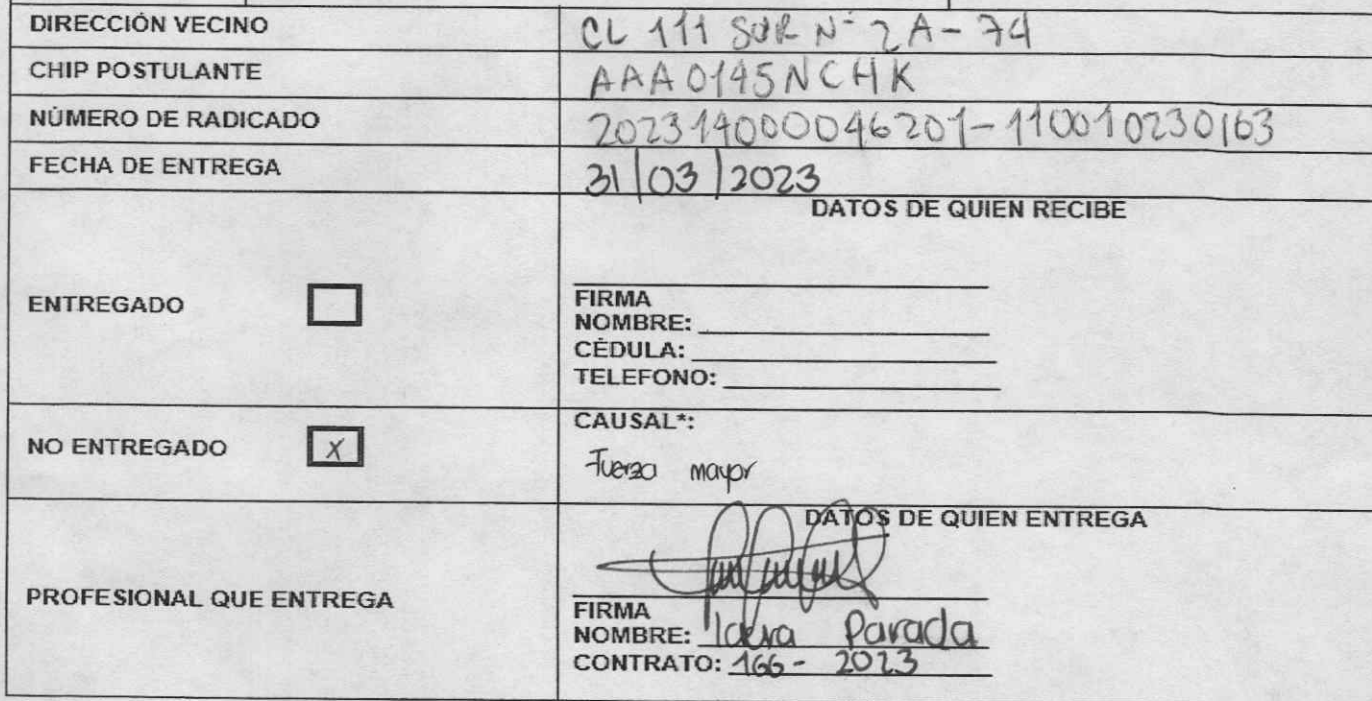 DIRECCIÓN VECINO CL 111 SUR N- 2A-74
CHIP POSTULANTE AAA0145NCHK
NÚMERO DE RADICADO 202314000046201-110010230163
FECHA DE ENTREGA 31|03|2023
DATOS DE QUIEN RECIBE
ENTREGADO
FIRMA
NOMBRE:
CÉDULA:
TELEFONO:
NO ENTREGADO X
CAUSAL*:
Fuerza mayor
DATOS DE QUIEN ENTREGA
PROFESIONAL QUE ENTREGA
FIRMA
NOMBRE: Parada
CONTRATO: 166- 2023